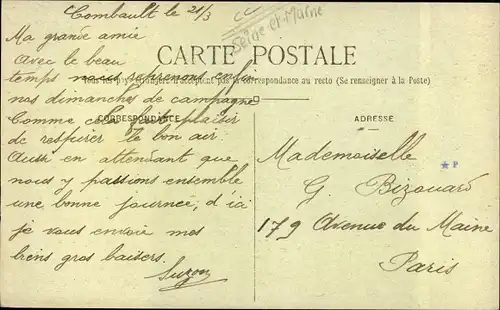 Combault le 21/3
Seine et Marne
Ma grande amie
Avec le beau
temps nous reprenons enfin
nos dimanches de campagne
Comme cela fait plaisir
de respirer le bon air.
Aussi en attendant que
nous y passions ensemble
une bonne journée, d'ici
je vous envoie mes
biens gros baisers.
Suzon
CARTE POSTALE
Tous les pays étrangers n'acceptent pas la correspondance au recto (Se renseigner à la Poste)
CORRESPONDANCE
ADRESSE
Mademoiselle
G. Bizouard
179 Avenue du Maine
Paris